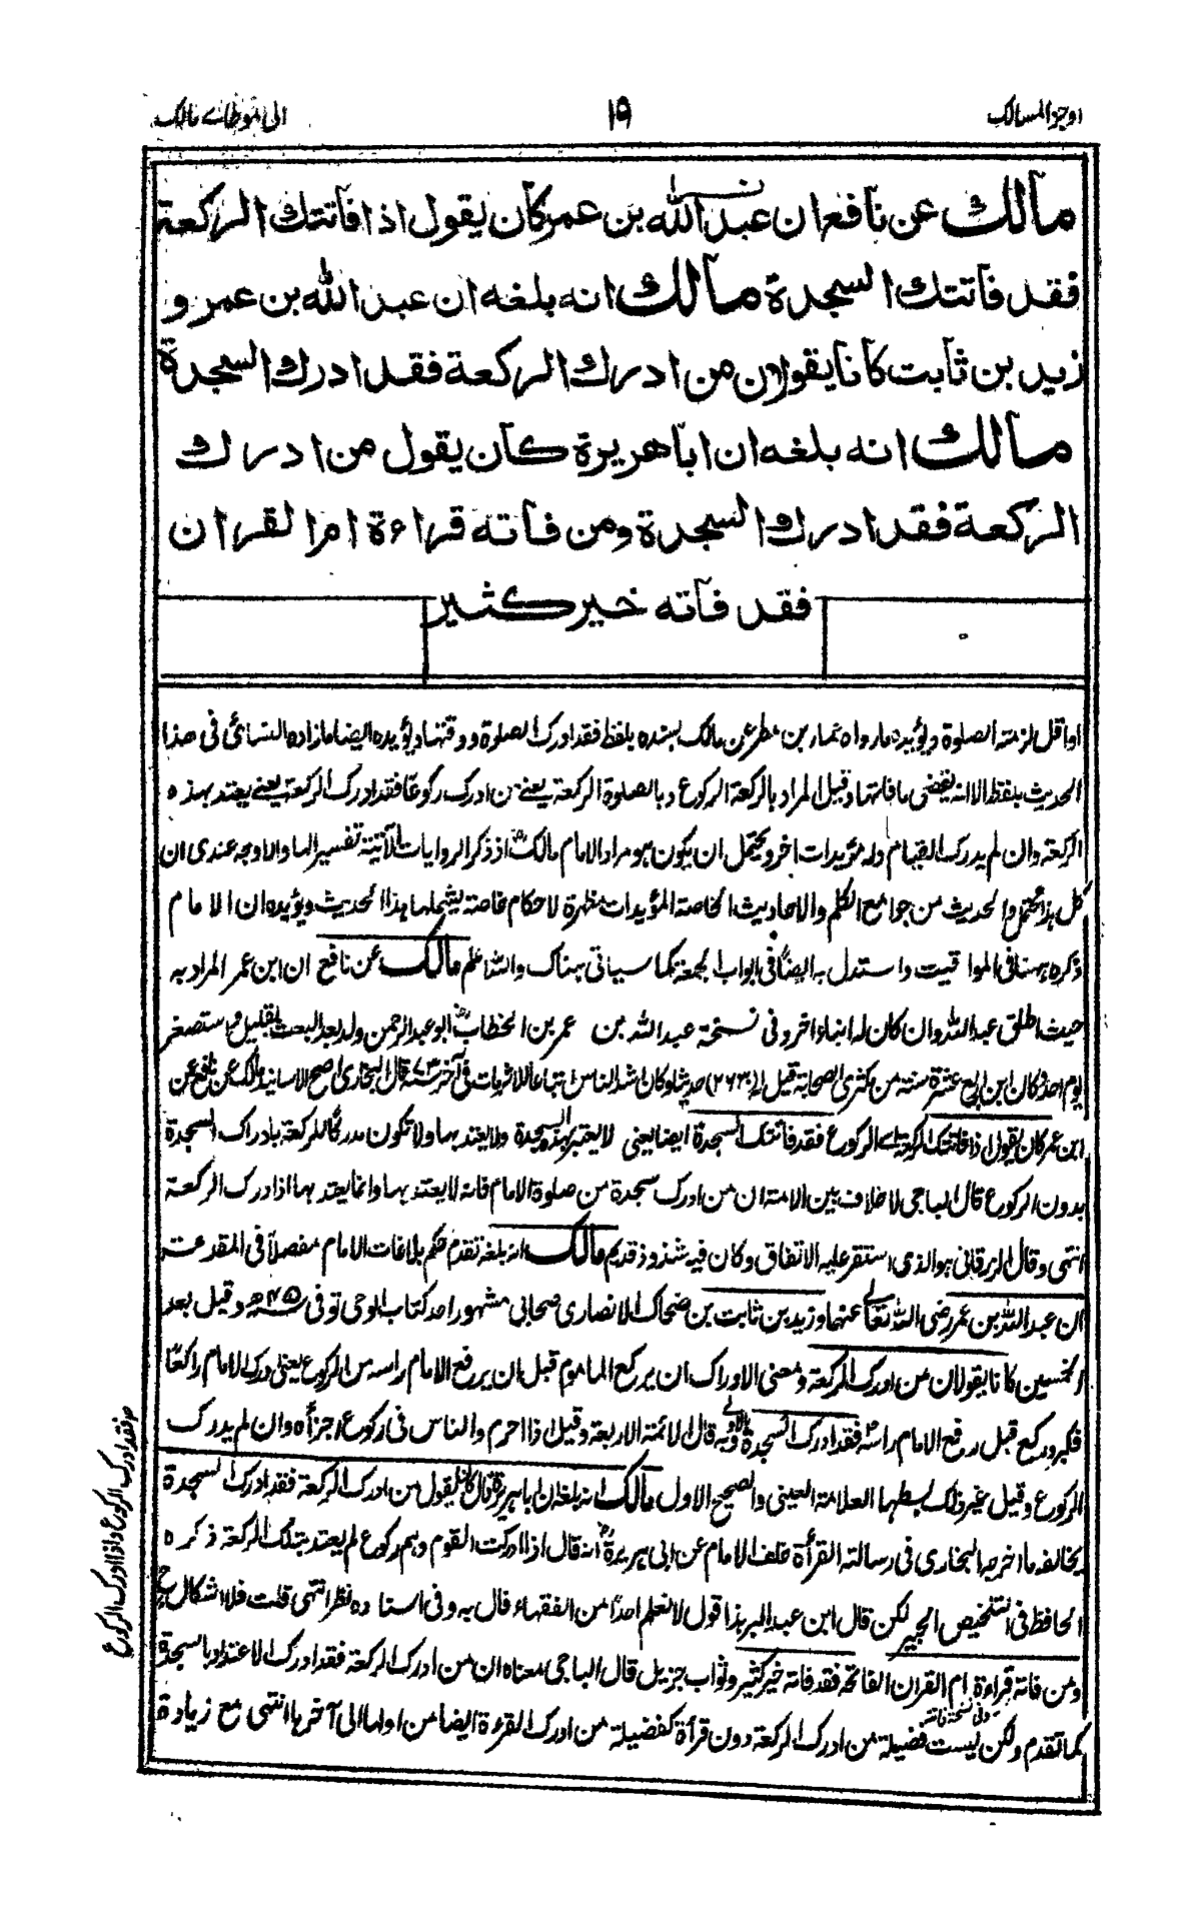 اوجز المسالك
١٩
الى مؤطائے مالك
مالك عن نافع ان عبد الله بن عمر كان يقول اذا فاتتك الركعة
فقد فاتتك السجدة مالك انه بلغه ان عبد الله بن عمر و
زيد بن ثابت كانا يقولان من ادرك الركعة فقد ادرك السجدة
مالك انه بلغه ان ابا هريرة كان يقول من ادرك
الركعة فقد ادرك السجدة ومن فاته قراءة ام القران
فقد فاته خير كثير
او اقل لزمته الصلوة ويؤيده ما رواه عمار بن مطر عن مالك بسنده بلفظ فقد ادرك الصلوة ووقتها ويؤيده ايضا ما زاده النسائى فى هذا
الحديث بلفظ الا انه يقضى ما فاتها وقيل المراد بالركعة الركوع وبالصلوة الركعة يعنے من ادرك ركوعا فقد ادرك الركعة يعنے يعتد بهذه
الركعة وان لم يدرك القيام وله مؤيدات اخر ويحتمل ان يكون هو مراد الامام مالك اذ ذكر الروايات الآتية تفسيرا لها والاوجه عندى ان
كل هذا محتمل والحديث من جوامع الكلم والاحاديث الخاصة المؤيدات مظهرة لاحكام خاصة يشملها هذا الحديث ويؤيده ان الامام
ذكره ههنا فى المواقيت واستدل به ايضا فى ابواب الجمعة كما سياتى هناك والله اعلم مالك عن نافع ان ابن عمر المراد به
حيث اطلق عبد الله وان كان له ابناء اخر وفى نسخة عبد الله بن عمر بن الخطاب ابو عبد الرحمن ولد بعد البعث بقليل واستصغر
يوم احد وكان ابن اربع عشرة سنة من مكثرى الصحابة قيل له (٢٦٣٠) حديثا وكان اشد الناس اتباعا للاثر مات فى آخر سنة ٧٣ قال البخارى اصح الاسانيد مالك عن نافع عن
ابن عمر كان يقول اذا فاتتك الركعة اے الركوع فقد فاتتك السجدة ايضا يعنى لا يعتبر بهذه السجدة ولا يعتد بها ولا تكون مدركا للركعة بادراك السجدة
بدون الركوع قال الباجى لا خلاف بين الامة ان من ادرك سجدة من صلوة الامام فانه لا يعتد بها وانما يعتد بها اذا ادرك الركعة
انتهى وقال الزرقانى هو الذى استقر عليه الاتفاق وكان فيه شذوذ قديم مالك انه بلغه تقدم حكم بلاغات الامام مفصلا فى المقدمة
ان عبد الله بن عمر رضى الله تعالى عنهما وزيد بن ثابت بن ضحاك الانصارى صحابى مشهور احد كتاب الوحى توفى سنة ٤٥ ھ وقيل بعد
الخمسين كانا يقولان من ادرك الركعة ومعنى الادراك ان يركع الماموم قبل ان يرفع الامام راسه من الركوع يعنى ادرك الامام راكعا
فكبر وركع قبل رفع الامام راسه فقد ادرك السجدة وبه قال الائمة الاربعة وقيل اذا احرم والناس فى ركوع اجزأه وان لم يدرك
الركوع وقيل غير ذلك بسطها العلامة العينى والصحيح الاول مالك انه بلغه ان ابا هريرة قال كان يقول من ادرك الركعة فقد ادرك السجدة
يخالفه ما اخرجه البخارى فى رسالته القرأة خلف الامام عن ابى هريرة انه قال اذا ادركت القوم وهم ركوع لم يعتد بتلك الركعة ذكره
الحافظ فى التلخيص الحبير لكن قال ابن عبد البر هذا قول لا نعلم احدا من الفقهاء قال به وفى اسناده نظر انتهى قلت فلا اشكال ح
ومن فاته قراءة ام القران الفاتحة فقد فاته خير كثير وثواب جزيل قال الباجى معناه ان من ادرك الركعة فقد ادرك الاعتداد بالسجدة
كما تقدم ولكن ليست فضيلة من ادرك الركعة دون قرأة كفضيلة من ادرك القراءة ايضا من اولها الى آخرها انتهى مع زيادة
فقد ادرك الركوع واذا ادرك الركوع